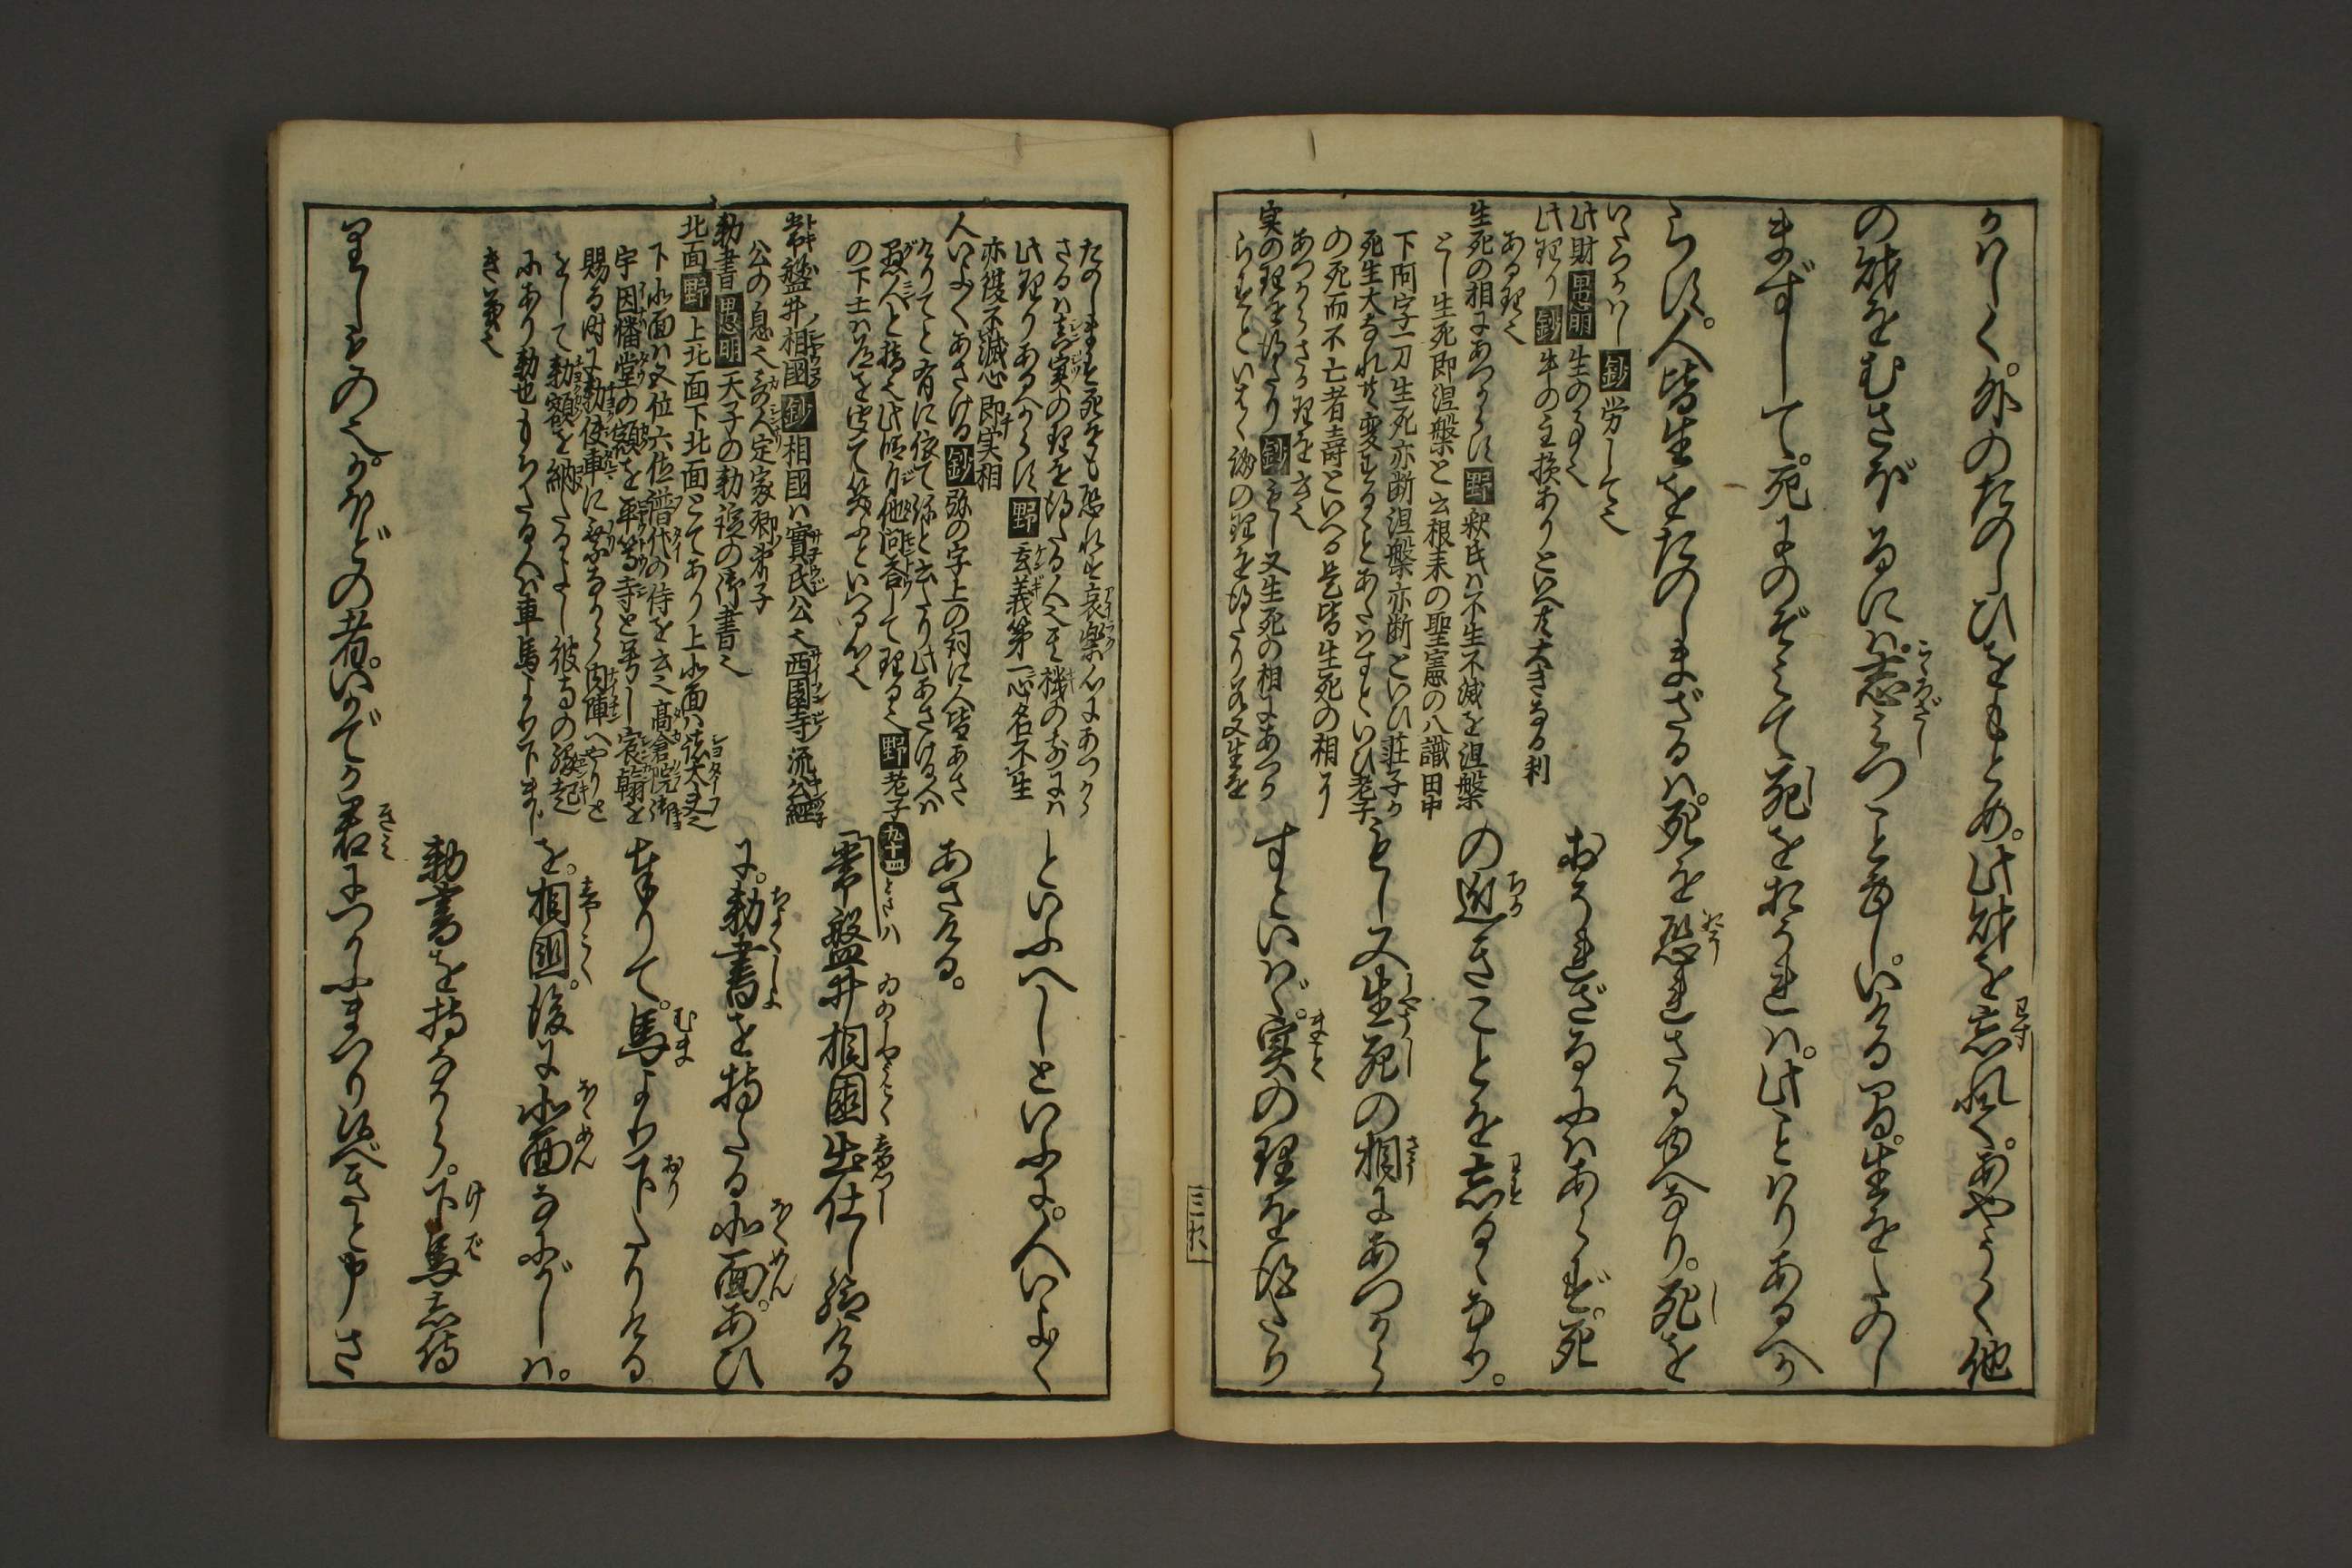 がはしく。外のたのしひをもとめ。此財を忘れて。あやうく他
の財をむさぼるには。志みつことなし。いける間。生をたのし
まずして。死にのぞみて。死をおそれは。此ことはりあるへか
らず。人皆生をたのしまざるは。死を恐れさる故なり。死を
いたつかはし 鈔 労してと
此財 愚明 生の事也
此理り 鈔 牛の主損ありといへ共大きなる利
ある理也
おそれざるにはあらず。死
生死の相にあつからず 野 釈氏は不生不滅を涅槃
とし生死即涅槃と云根来の聖憲の八識田中
の近きことを忘るゝなり。
下阿字一刀生死亦断涅槃亦断といひ荘子か
死生大なれ共変することあたはすといひ老子
もし又生死の相にあつから
の死而不亡者寿といへる是皆生死の相に
あつからさる理をさす
実の理を得たり 鈔 もし又生死の相にあつか
らすといはゝ誠の理を得たり又生を
すといはゞ。実の理を得たり
たのします死をも恐れす哀楽心にあつから
さるは真実の理を得たる人也其機のまへには
此理りあるへからす 野 玄義第一心名不生
亦復不滅心即実相
といふへしといふに。人いよ〳〵
人いよ〳〵あさける 鈔 弥の字上の詞に人皆あさ
けりてと有に依て弥と云たり此あさける人は
愚人と指也此段り他問答して理る也 野 老子
の下士は道を聞て笑ふといへる心也
あさける。
九十四
常盤井相國 鈔 相國は實氏公也西園寺流公経
公の息也哥人定家卿弟子
常盤井相國出仕し給ける
勅書 愚明 天子の勅諚の御書也
北面 野 上北面下北面とてあり上北面は諸大夫也
に。勅書を持たる北面。あひ
下北面は五位六位譜代の侍を云也高倉院御
宇因幡堂の額を平等寺と号し宸翰を
奉りて。馬より下たりける
賜る時に勅使車に乗なから内陣へやりと
をして勅額を納たるよし彼寺の縁起
を。相國。後に北面なにがしは。
にあり勅也もちたる人は車馬より下まし
き義也
勅書を持なから。下馬し侍
りしものなり。かほどの者。いかでか君につかふまつり候べきと申さ